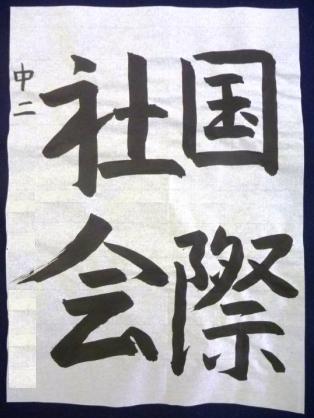 国際
社会
中二